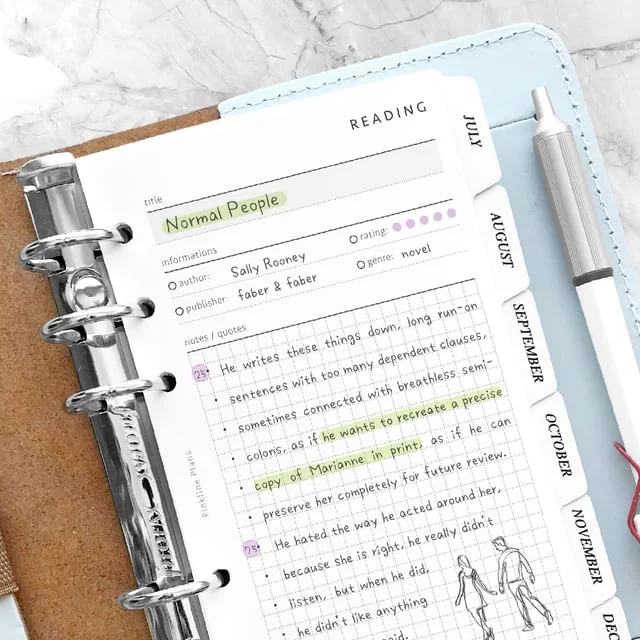 READING
title
Normal People
informations
author: Sally Rooney
rating:
publisher: faber & faber
genre: novel
notes / quotes
He writes these things down, long run-on
sentences with too many dependent clauses,
sometimes connected with breathless semi-
colons, as if he wants to recreate a precise
copy of Marianne in print, as if he can
preserve her completely for future review.
He hated the way he acted around her,
because she is right, he really didn't
listen, but when he did,
he didn't like anything
Pinkline Plans
JULY
AUGUST
SEPTEMBER
OCTOBER
NOVEMBER